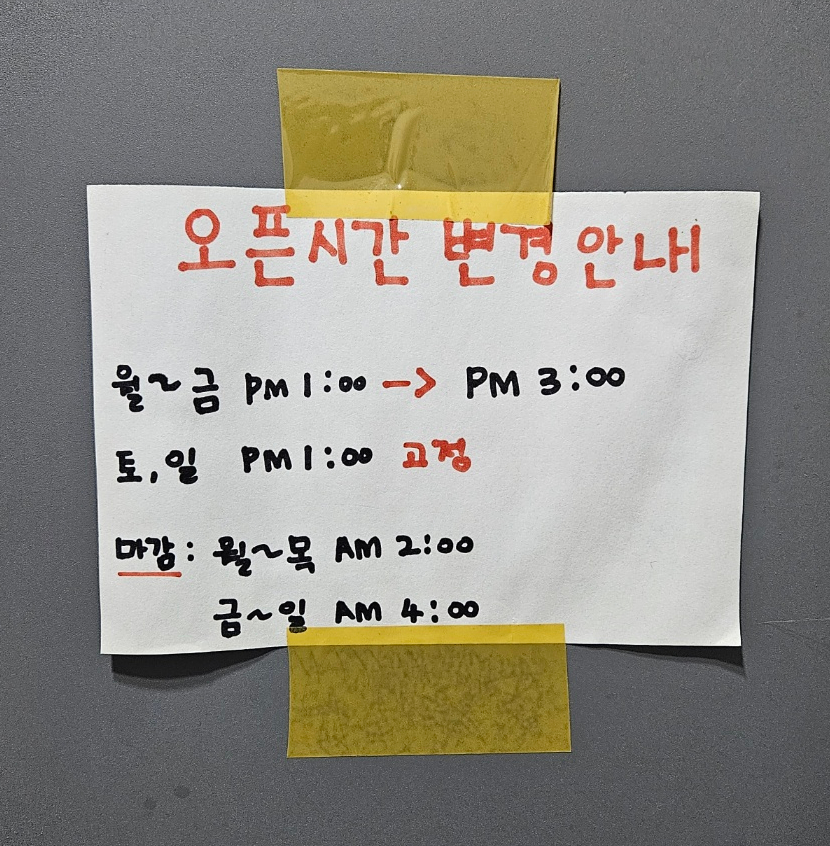 오픈시간 변경 안내
월~금 PM 1:00 -> PM 3:00
토,일 PM 1:00 고정
마감: 월~목 AM 2:00
금~일 AM 4:00